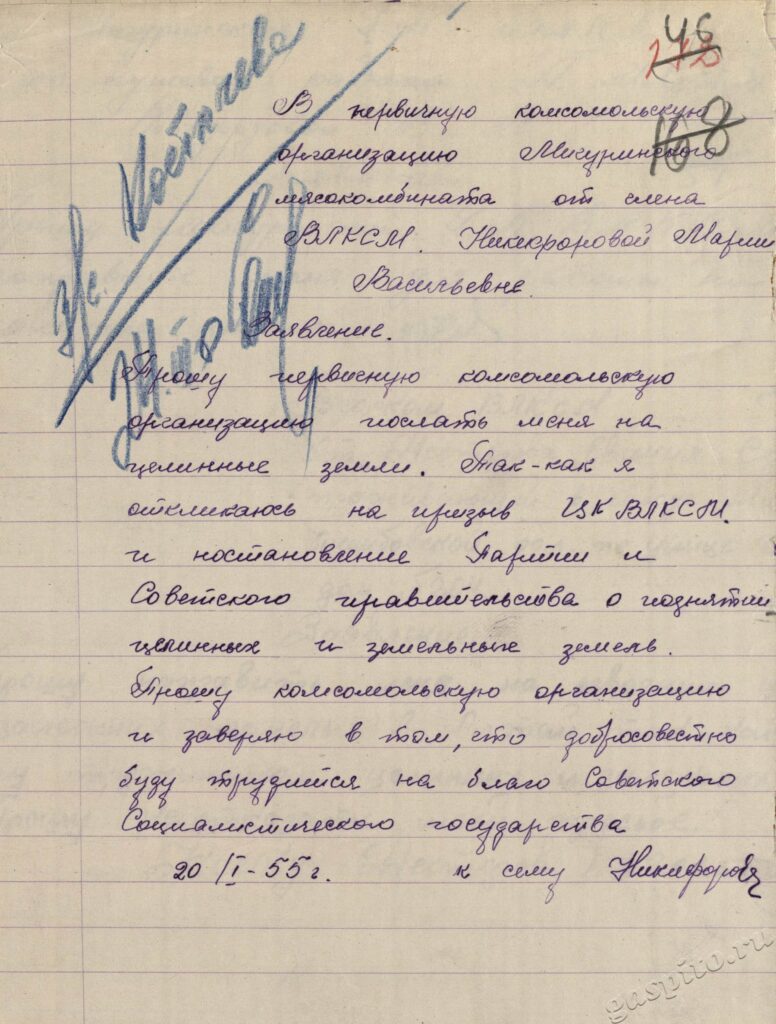 46
108
В первичную комсомольскую
организацию Мичуринского
мясокомбината от члена
ВЛКСМ. Никифоровой Марии
Васильевне.
Заявление.
Прошу первичную комсомольскую
организацию послать меня на
целинные земли. Так-как я
откликаюсь на призыв ЦК ВЛКСМ.
и постановление Партии и
Советского правительства о поднятии
целинных и земельных земель.
Прошу комсомольскую организацию
и заверяю в том, что добросовестно
буду трудится на благо Советского
Социалистического государства
20/I-55г. к сему Никифорова
gaspito.ru